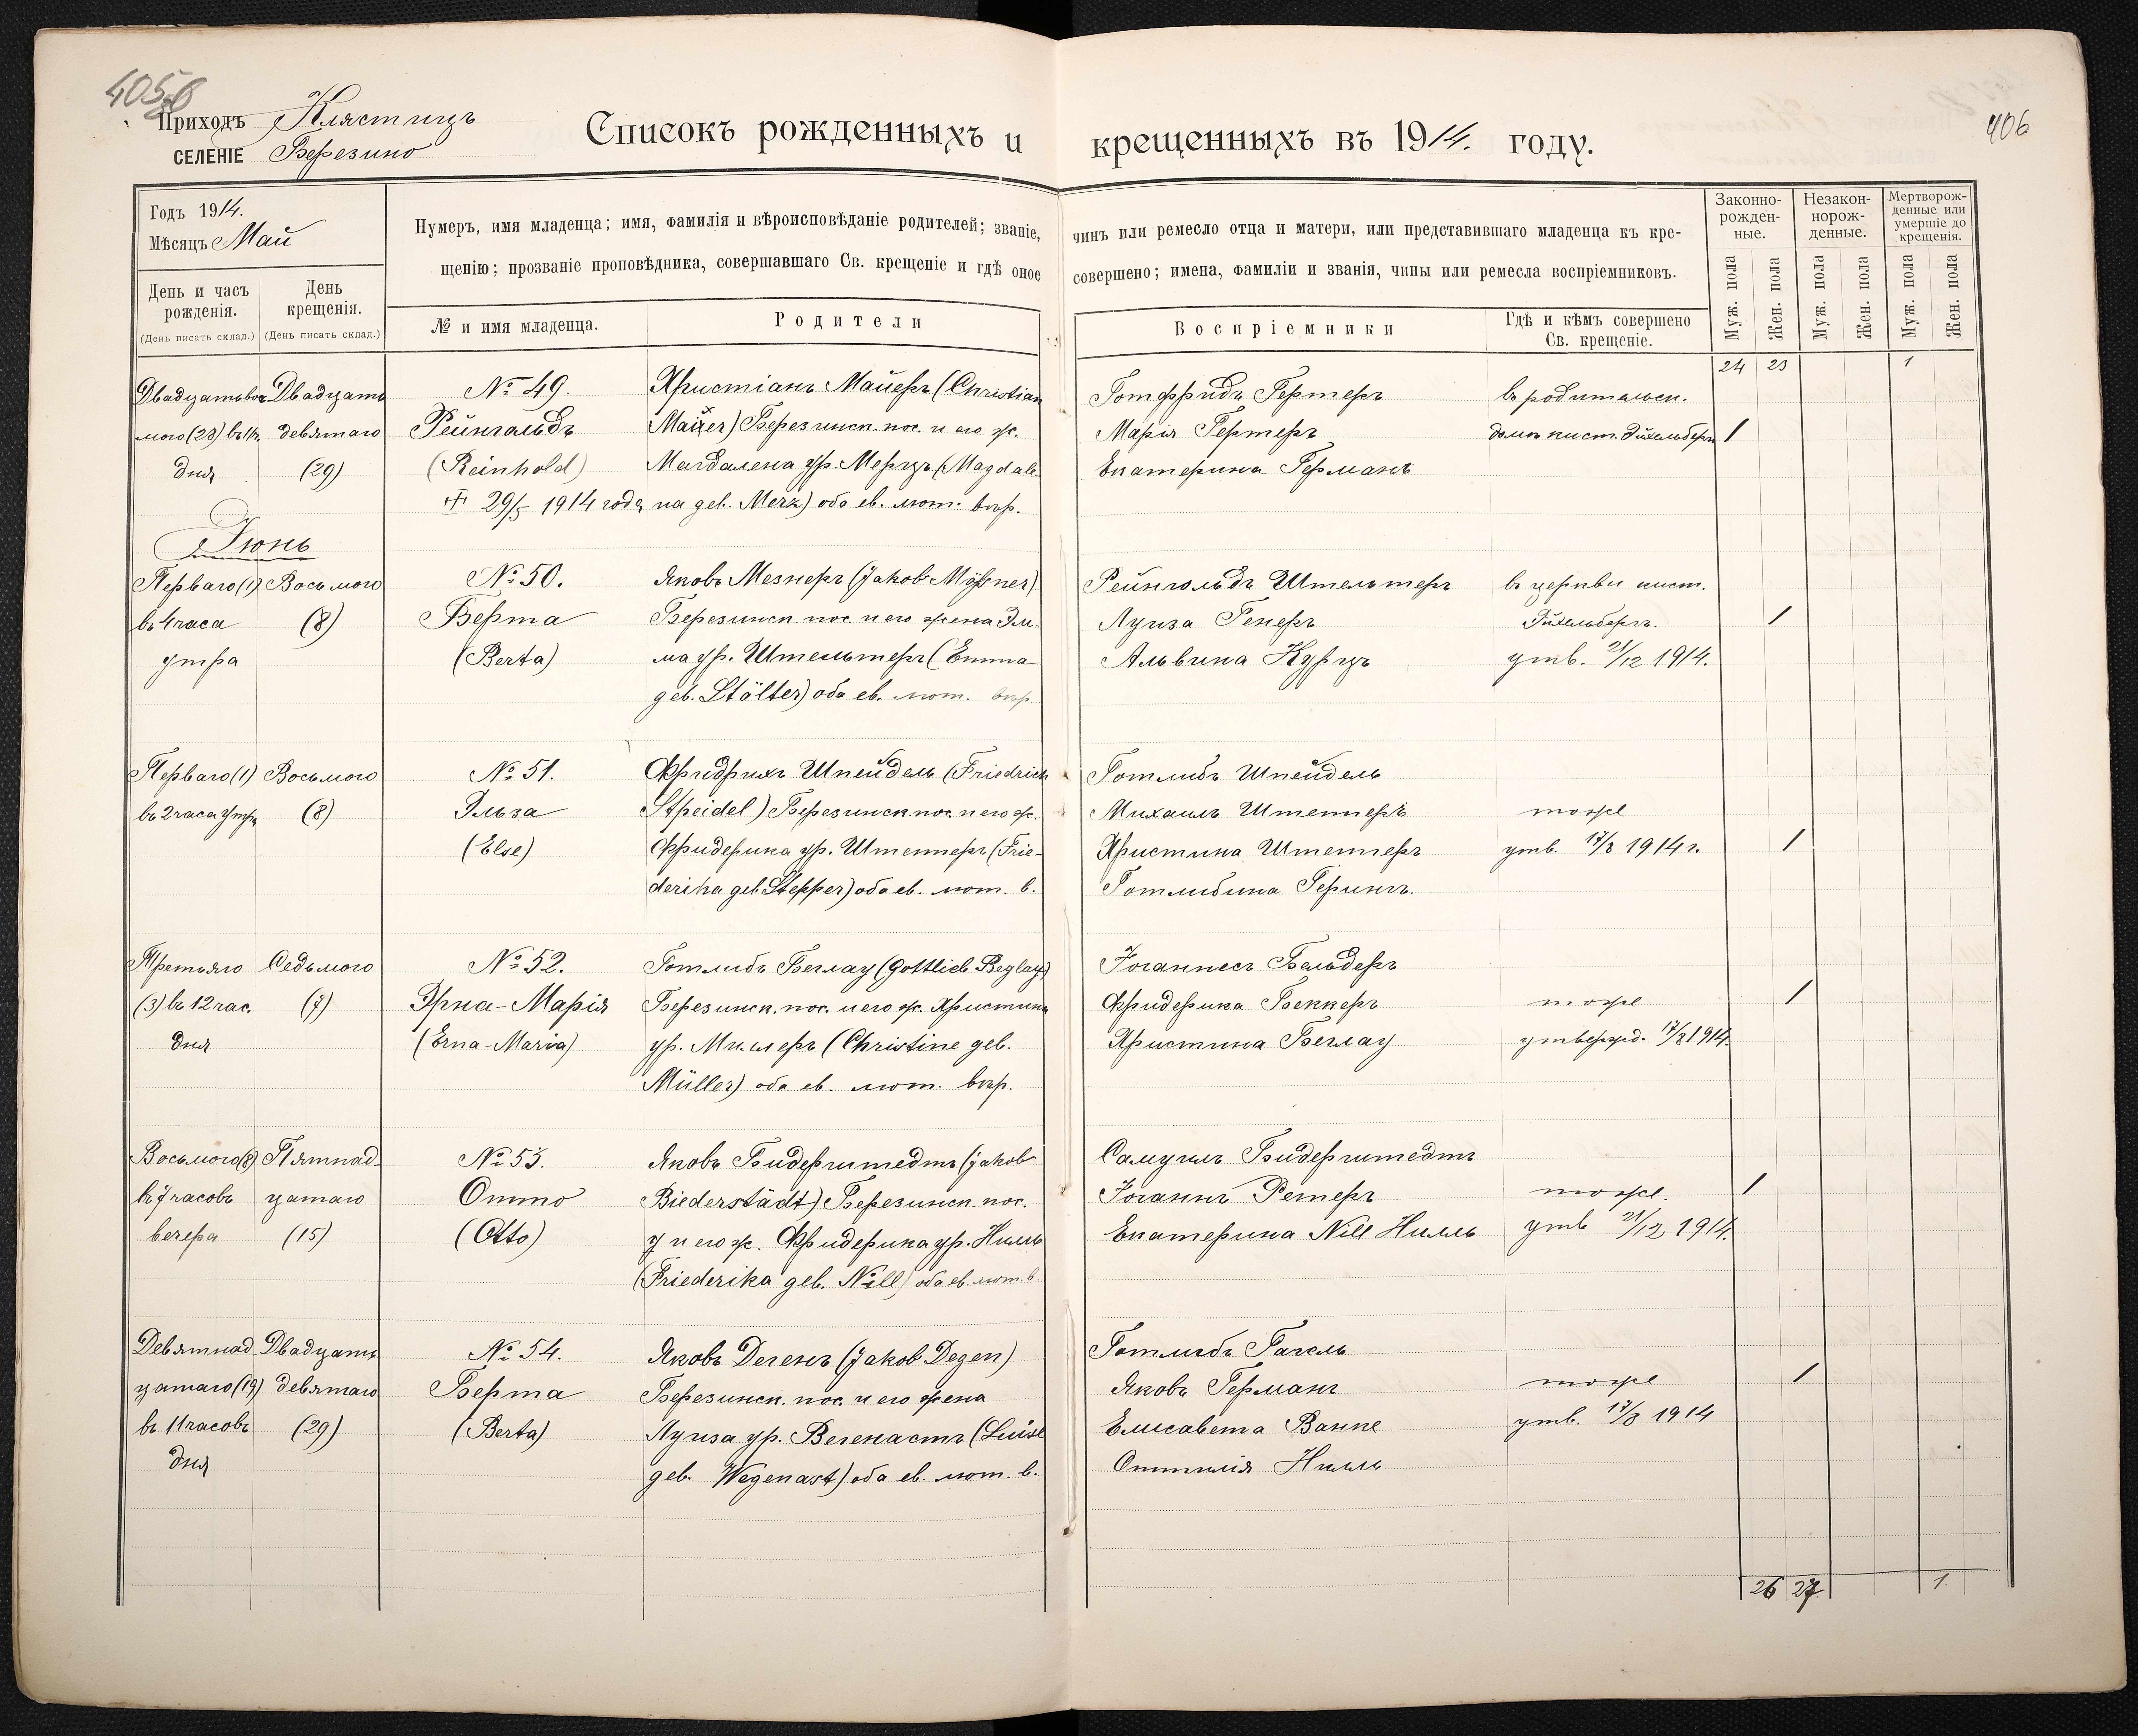 405б
406
Приходъ Клястицъ
СЕЛЕНІЕ Березино
Списокъ рожденныхъ и крещенныхъ въ 1914. году.
Годъ 1914.
Мѣсяцъ Май
День и часъ рожденія.
(День писать склад.)
День крещенія.
(День писать склад.)
Нумеръ, имя младенца; имя, фамилія и вѣроисповѣданіе родителей; званіе, чинъ или ремесло отца и матери, или представившаго младенца къ кре-
щенію; прозваніе проповѣдника, совершавшаго Св. крещеніе и гдѣ оное совершено; имена, фамиліи и званія, чины или ремесла воспріемниковъ.
№ и имя младенца.
Родители
Воспріемники
Гдѣ и кѣмъ совершено
Св. крещеніе.
Законно-
рожден-
ные.
Незакон-
норож-
денные.
Мертворож-
денные или
умершіе до
крещенія.
Муж. пола
Жен. пола
Муж. пола
Жен. пола
Муж. пола
Жен. пола
24 23 1
Двадцатьвось
мого (28) въ
дня
Двадцать
девятаго
(29)
№ 49.
Рейнгольдъ
(Reinhold)
29/5 1914 года
Христіанъ Майеръ (Christian
Maier) Березинск. пос. и его ж.
Магдалена ур. Мерцъ (Magdale-
na geb. Merz) оба ев. лют. вѣр.
Готфридъ Гертеръ
Марія Гертеръ
Екатерина Германъ
въ родительск.
домѣ кист. Эйхельбергъ
1
Іюнь
Перваго (1)
въ 4 часа
утра
Восьмого
(8)
№ 50.
Берта
(Berta)
Яковъ Мезнеръ (Jakob Mößner)
Березинск. пос. и его жена Эм-
ма ур. Штельтеръ (Emma
geb. Stölter) оба ев. лют. вѣр.
Рейнгольдъ Штельтеръ
Луиза Генеръ
Альвина Курцъ
въ церкви кист.
Эйхельбергъ.
утв. 21/12 1914.
1
Перваго (1)
въ 2 часа утра
Восьмого
(8)
№ 51.
Эльза
(Else)
Фридрихъ Шпейдель (Friedrich
Speidel) Березинск. пос. и его ж.
Фридерика ур. Штепперъ (Frie-
derika geb. Stepper) оба ев. лют. в.
Готлибъ Шпейдель
Михаилъ Штепперъ
Христина Штепперъ
Готлибина Герингъ.
тоже
утв. 17/8 1914 г.
1
Третьяго
(3) въ 12 час.
дня
Седьмого
(7)
№ 52.
Эрна-Марія
(Erna-Maria)
Готлибъ Беглау (Gottlieb Beglau)
Березинск. пос. и его ж. Христина
ур. Миллеръ (Christine geb.
Müller) оба ев. лют. вѣр.
Іоганнесъ Бельдеръ
Фридерика Беккеръ
Христина Беглау
тоже
утвержд. 17/8 1914.
1
Восьмого (8)
въ 7 часовъ
вечера
Пятнад-
цатаго
(15)
№ 53.
Отто
(Otto)
Яковъ Бидерштедтъ (Jakob
Biederstädt) Березинск. пос.
и его ж. Фридерика ур. Нилль
(Friederika geb. Nill) оба ев. лют. в.
Самуилъ Бидерштедтъ
Іоганнъ Ретеръ
Екатерина Nill Нилль
тоже.
утв 21/12 1914.
1
Девятнад-
цатаго (19)
въ 11 часовъ
дня
Двадцать
девятаго
(29)
№ 54.
Берта
(Berta)
Яковъ Дегенъ (Jakob Degen)
Березинск. пос. и его жена
Луиза ур. Вегенастъ (Luise
geb. Wegenast) оба ев. лют. в.
Готлибъ Гагель
Яковъ Германъ
Елисавета Ванке
Оттилія Нилль
тоже
утв. 17/8 1914
1
26 27 1